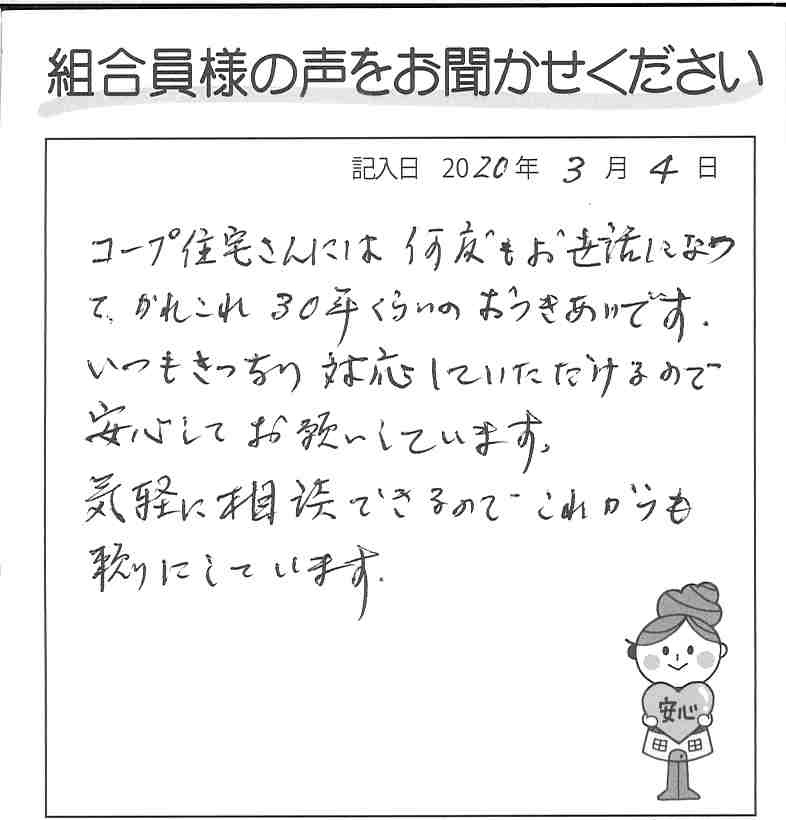 組合員様の声をお聞かせください
記入日 2020年 3月 4日
コープ住宅さんには 何度もお世話になっ
て、かれこれ 30年くらいの おつきあいです.
いつもきっちり 対応していただけるので
安心して お願いしています。
気軽に相談できるので これからも
頼りにしています.
安心